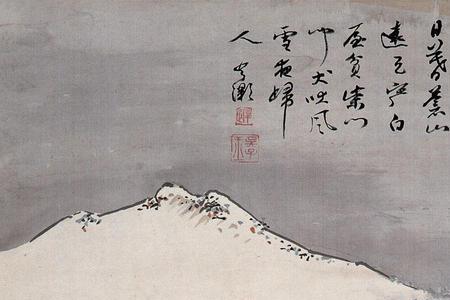 日暮蒼山
遠天寒白
屋貧柴門
聞犬吠風
雪夜歸
人